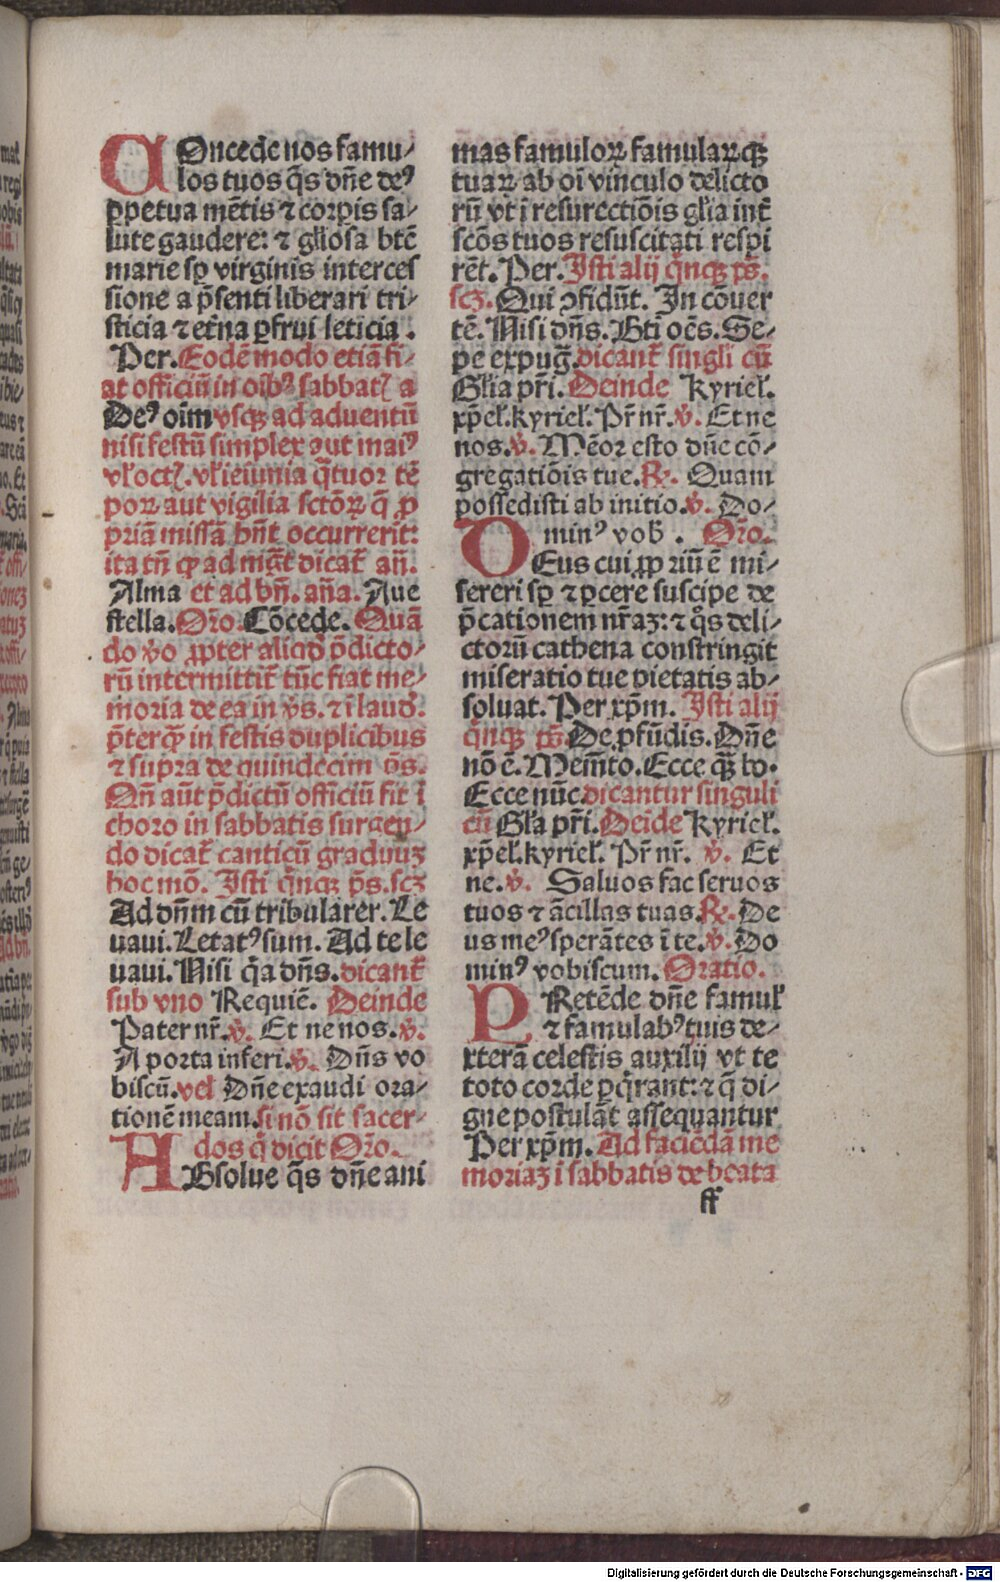 COncede nos famu⸗
los tuos q̄s dn̄e deꝰ
ꝑpetua mētis ⁊ corꝑis sa⸗
lute gaudere: ⁊ gl̄iosa btē
marie sꝑ virginis interces
sione a p̄senti liberari tri⸗
sticia ⁊ et̄na ꝑfrui leticia.
Per. Eodē modo etiā fi⸗
at officiū in oībꝰ sabbatꝭ a
Deꝰ oīm vsqꝫ ad aduentū
nisi festū simplex aut maiꝰ
vl̓ octꝭ. vl̓ ieiunia q̄tuor tē
poꝝ aut vigilia sctōꝝ q̄ ꝓ
priā missā hn̄t occurrerīt:
ita tn̄ ꝙ ad mgt̄ dicat̄ an̄.
Alma et ad bn̄. an̄a. Aue
stella. Or̄o. Cōcede. Quā
do v̓o ꝓpter aliqd̓ p̄dicto⸗
rū intermittit̄ tūc fiat me⸗
moria de ea in v̓s. ⁊ ī laud̓.
p̄terqꝫ in festis duplicibus
⁊ supra de quindecim ps̄.
Qn̄ aūt p̄dictū officiū fit ī
choro in sabbatis surgen⸗
do dicat̄ canticū graduuꝫ
hoc mō. Isti q̄nqꝫ ps̄. scꝫ
Ad dn̄m cū tribularer. Le
uaui. Letatꝰ sum. Ad te le
uaui. Nisi q̄a dn̄s. dicant̄
sub vno Requiē. Deinde
Pater nr̄. v̓. Et ne nos. v̓.
A porta inferi. v̓. Dn̄s vo
biscū. vel Dn̄e exaudi ora⸗
tionē meam. si nō sit sacer⸗
dos q̄ dicit Or̄o.
ABsolue q̄s dn̄e ani
mas famuloꝝ famulaꝝqꝫ
tuaꝝ ab oī vinculo delicto
rū vt ī resurectiōis gl̄ia int̄
scōs tuos resuscitati respi
rēt. Per. Isti alij q̄nqꝫ ps̄.
scꝫ. Qui ꝯfidūt. In cōuer
tē. Nisi dn̄s. Bti oēs. Se⸗
pe expuḡ. dicant̄ singli cū
Gl̄ia pr̄i. Deinde Kyriel̓.
xp̄el̓. kyriel̓. Pr̄ nr̄. v̓. Et ne
nos. v̓. Mēor esto dn̄e cō⸗
gregatiōis tue. ℞. Quam
possedisti ab initio. v̓. Do⸗
minꝰ vob̓. Or̄o.
DEus cui ꝓpriū ē mi⸗
sereri sꝑ ⁊ ꝑcere suscipe de
p̄cationem nr̄aꝫ: ⁊ qͦs deli⸗
ctorū cathena constringit
miseratio tue pietatis ab⸗
soluat. Per xp̄m. Isti alij
q̄nqꝫ ps̄. De ꝓfūdis. Dn̄e
nō ē. Memēto. Ecce qꝫ bo.
Ecce nūc. dicantur singuli
cū Gl̄a pr̄i. Deīde Kyriel̓.
xp̄el̓. kyriel̓. Pr̄ nr̄. v̓. Et
ne. v̓. Saluos fac seruos
tuos ⁊ ācillas tuas. ℞. De
us meꝰ sperātes ī te. v̓. Do
minꝰ vobiscum. Oratio.
PRetēde dn̄e famul̓
⁊ famulabꝰ tuis de⸗
xterā celestis auxilij vt te
toto corde ꝑq̄rant: ⁊ q̄ di⸗
gne postulāt assequantur
Per xp̄m. Ad faciēdā me
moriaꝫ i sabbatis de beata
ff
Digitalisierung gefördert durch die Deutsche Forschungsgemeinschaft - DFG